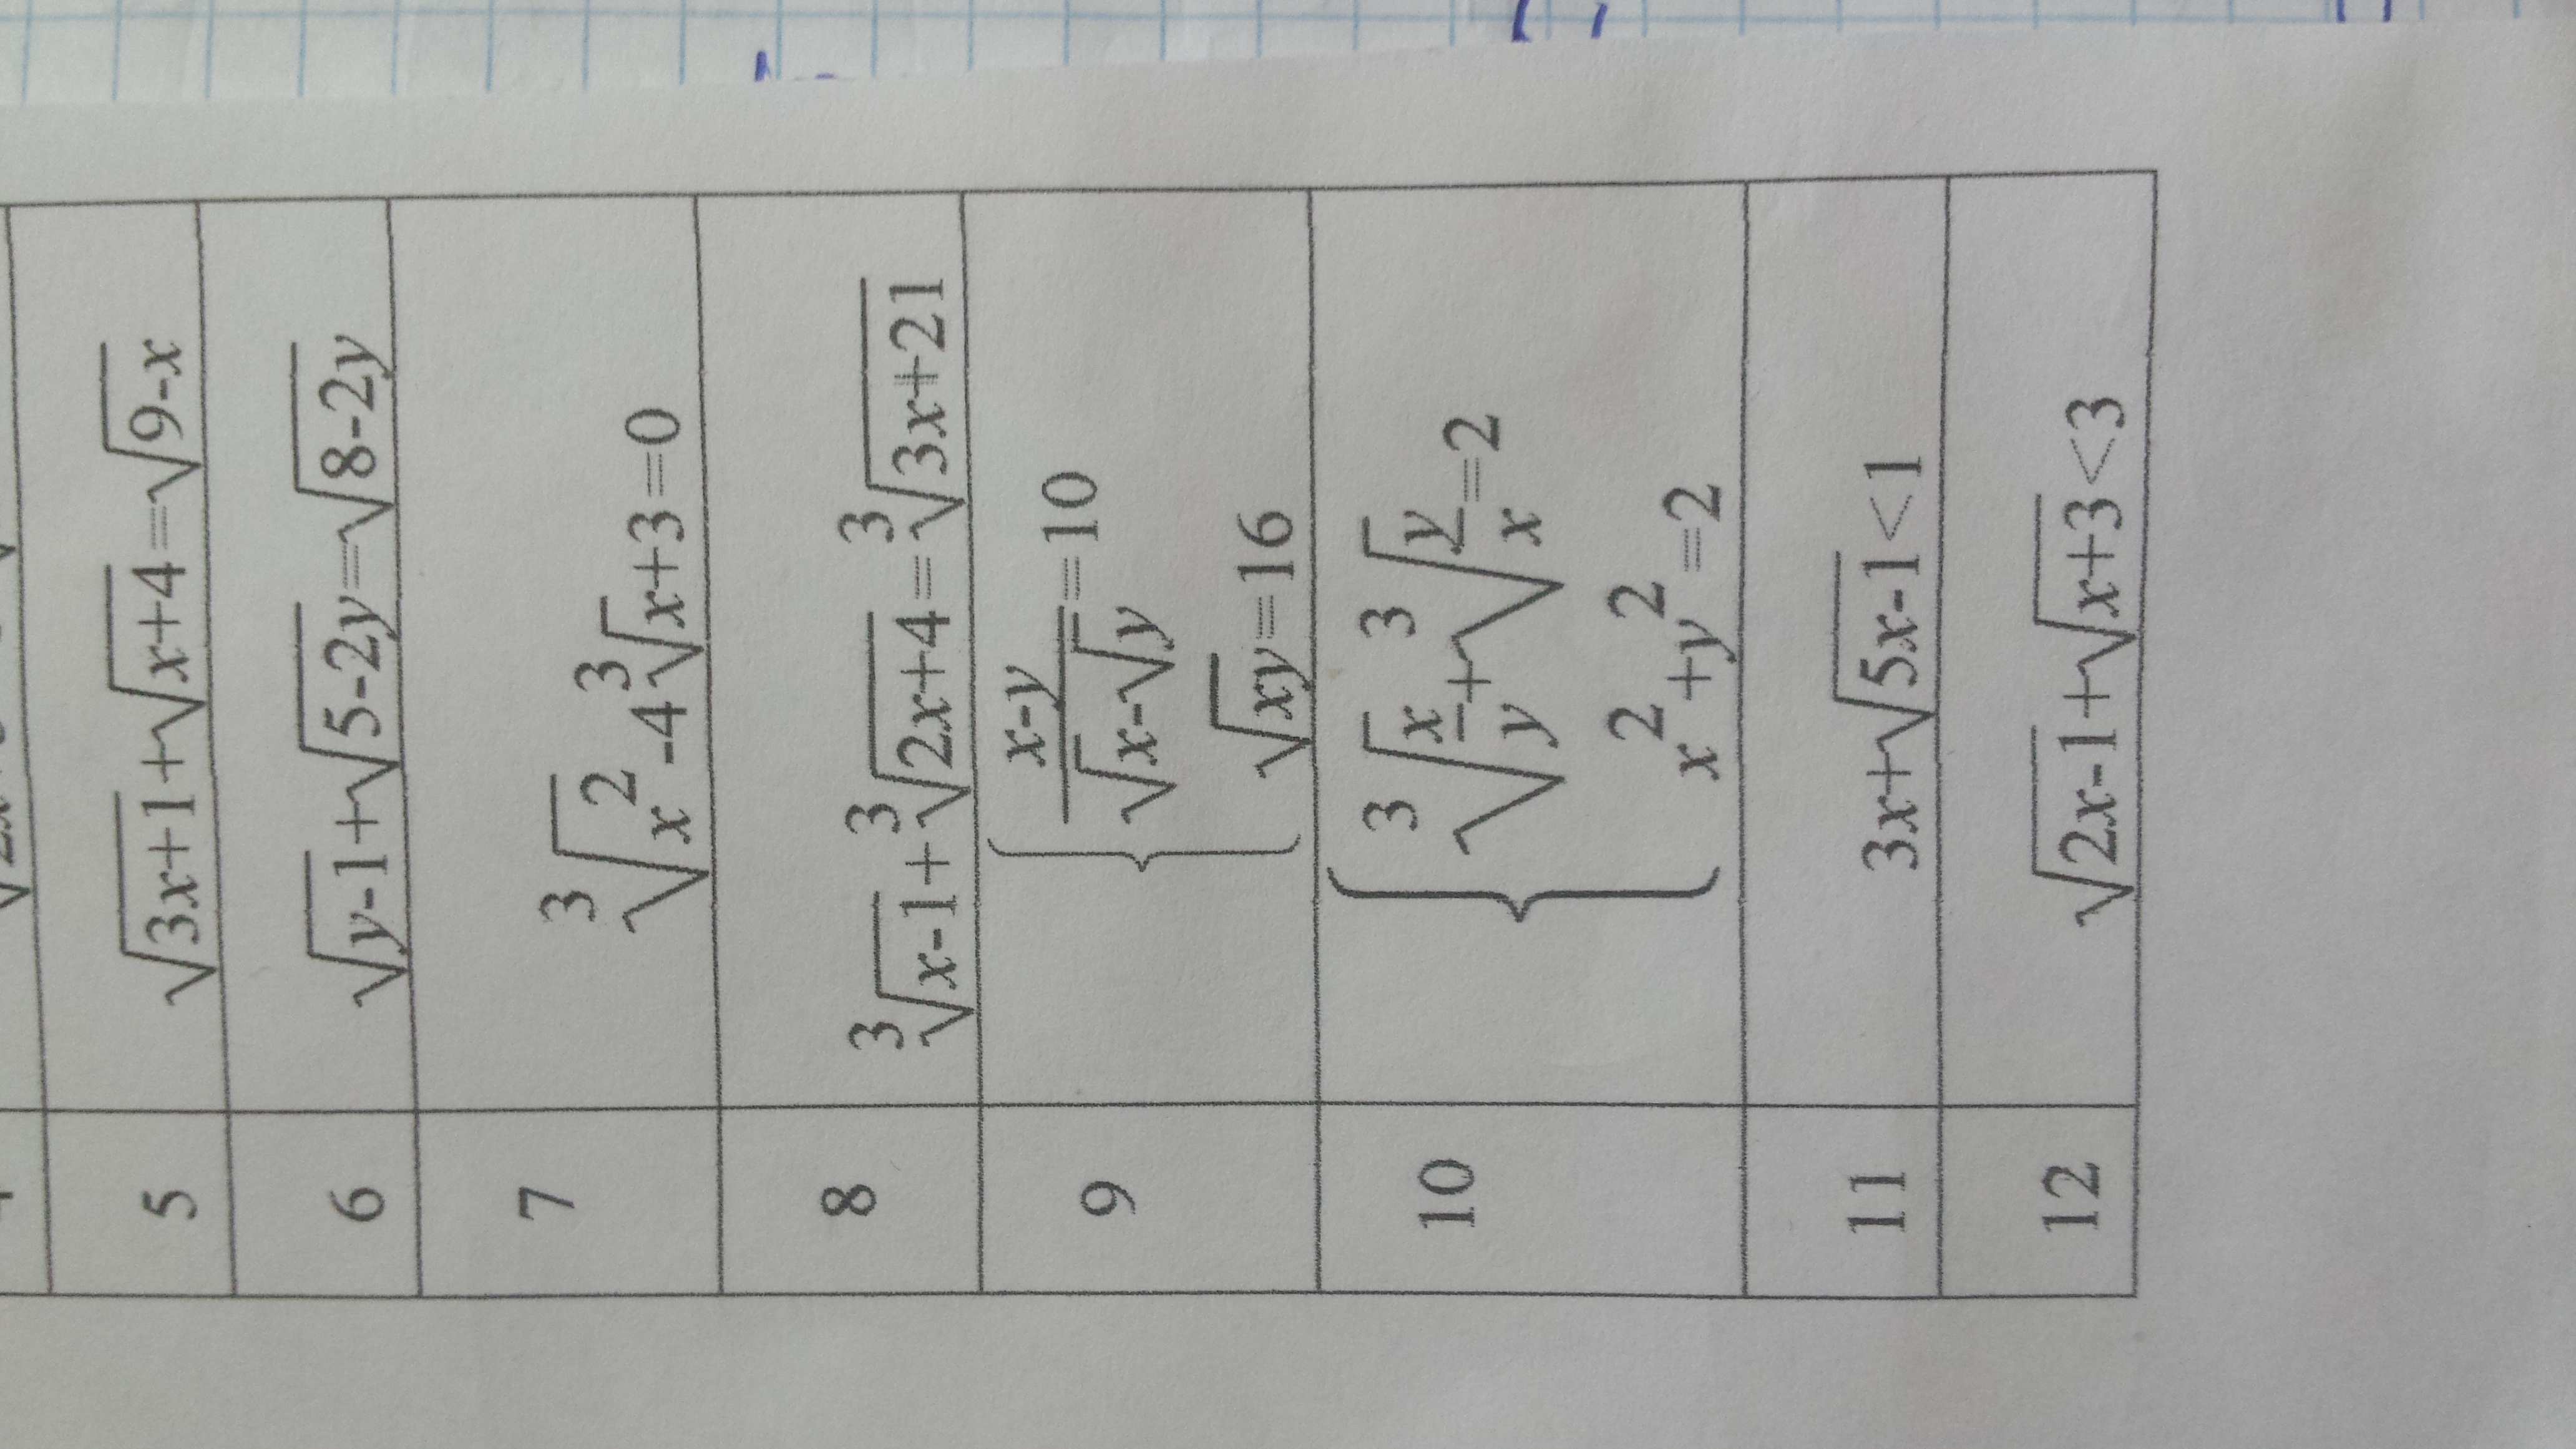 5 √(3x+1)+√(x+4)=√(9-x)
6 √(y-1)+√(5-2y)=√(8-2y)
7 ∛(x²)-4∛x+3=0
8 ∛(x-1)+∛(2x+4)=∛(3x+21)
9 { (x-y)/(√x-√y)=10
√(xy)=16
10 { ∛(x/y)+∛(y/x)=2
x²+y²=2
11 3x+√(5x-1)<1
12 √(2x-1)+√(x+3)<3